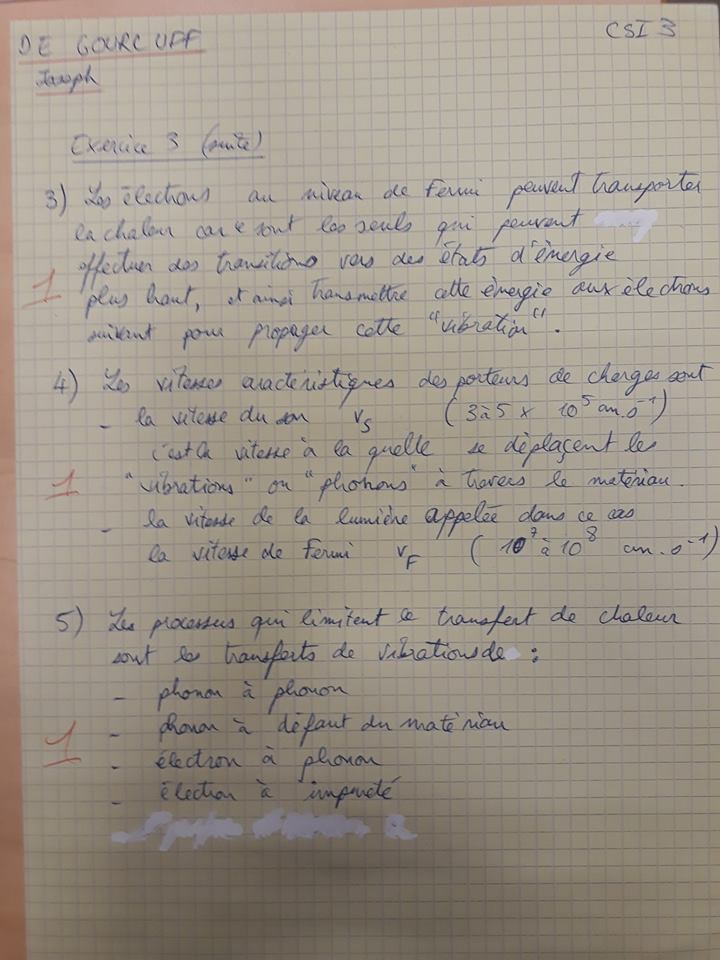 DE GOURCUFF
CSI 3
Joseph
Exercice 3 (suite)
3) Les électrons au niveau de Fermi peuvent transporter
la chaleur car ce sont les seuls qui peuvent
effectuer des transitions vers des états d'énergie
1
plus haut, et ainsi transmettre cette énergie aux électrons
suivant pour propager cette "vibration".
4) Les vitesses aractéristiques des porteurs de charges sont
- la vitesse du son vS (3 à 5 x 10^5 cm.s^-1)
c'est la vitesse à la quelle se déplaçent les
1
"vibrations" ou "phonons" à travers le matériau.
- la vitesse de la lumière appelée dans ce cas
la vitesse de Fermi vF (10^7 à 10^8 cm.s^-1)
5) Les processus qui limitent le transfert de chaleur
sont les transports de vibrations de :
- phonon à phonon
1
- phonon à défaut du matériau
- électron à phonon
- électron à impureté